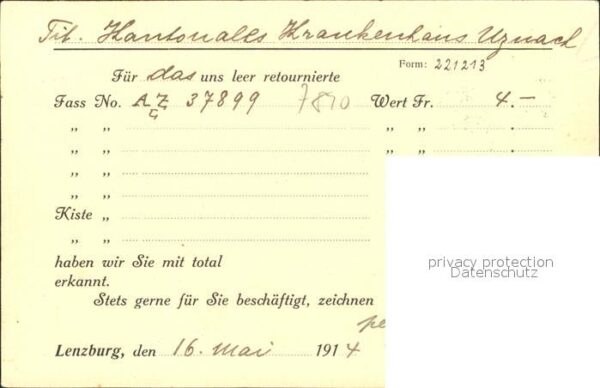 Tit. Kantonales Krankenhaus Uznach
Form: 221213
Für das uns leer retournierte
Fass No. A Z 37899 7810 Wert Fr. 4.–
„ „ „ „
„ „ „ „
„ „
„ „
Kiste „
„ „
haben wir Sie mit total
erkannt.
privacy protection
Datenschutz
Stets gerne für Sie beschäftigt, zeichnen
Lenzburg, den 16. Mai 1914